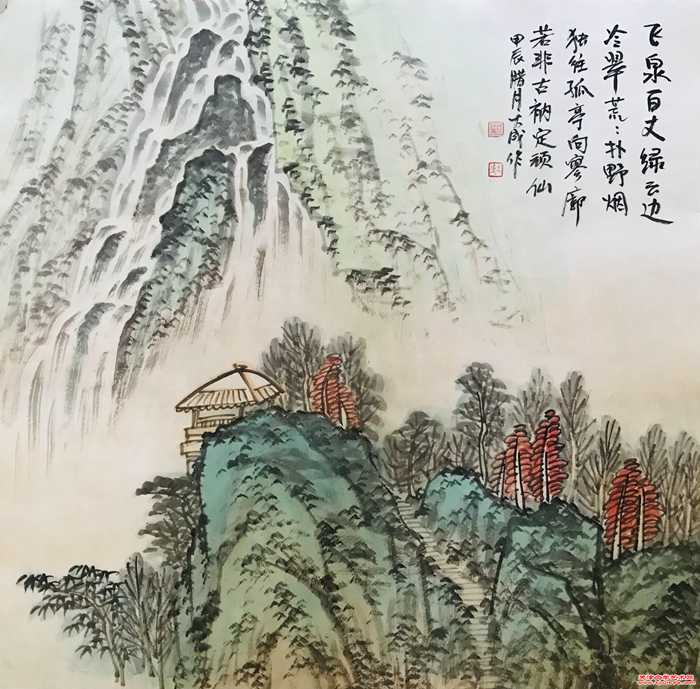 飞泉百丈绿云边
冷翠荒〻扑野烟
独住孤亭向寥廓
若非古衲定顽仙
甲辰腊月大成作